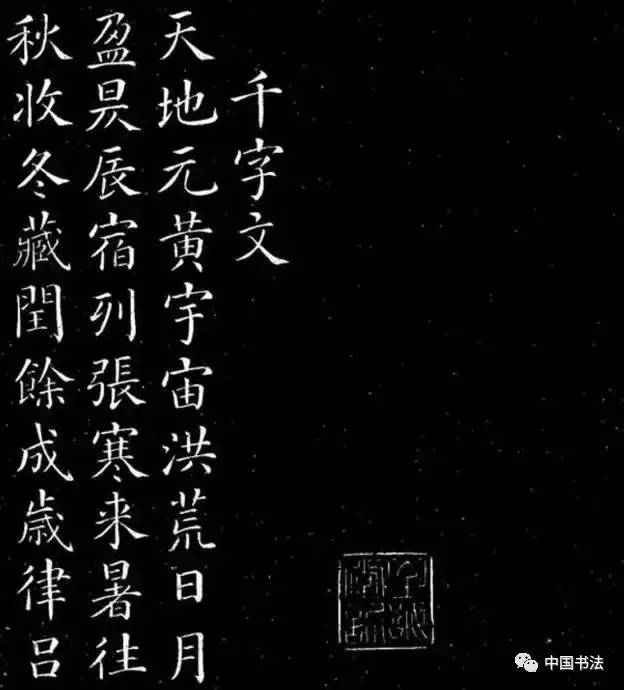 千字文
天地元黄宇宙洪荒日月
盈昃辰宿列張寒来暑往
秋收冬藏閏餘成歲律吕
中国书法